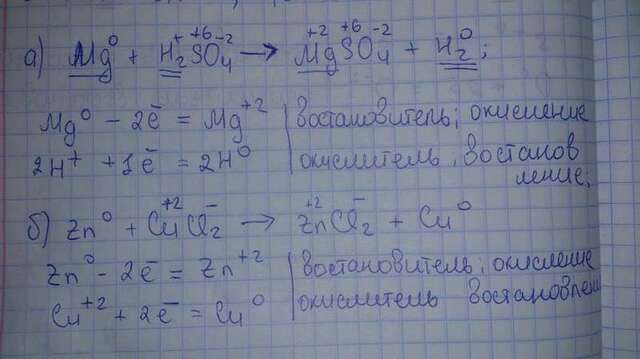 а) Mg⁰ + H₂⁺S⁺⁶O₄⁻² → Mg⁺²S⁺⁶O₄⁻² + H₂⁰;
Mg⁰ - 2ē = Mg⁺² | востановитель; окисление
2H⁺ + 1ē = 2H⁰ | окислитель, востанов
ление;
б) Zn⁰ + Cu⁺²Cl₂⁻ → Zn⁺²Cl₂⁻ + Cu⁰
Zn⁰ - 2ē = Zn⁺² | востановитель; окисление
Cu⁺² + 2ē = Cu⁰ | окислитель востановлени